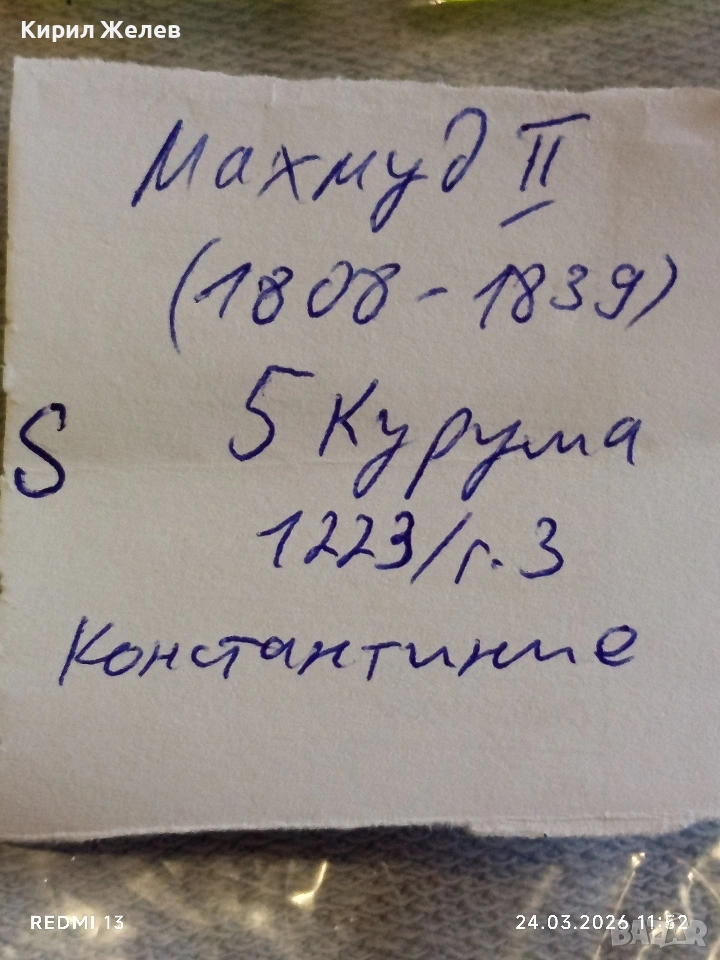 Кирил Желев
Махмуд II
(1808-1839)
S 5 Курума
1223/г.3
Константиние
REDMI 13
24.03.2026 11:52
BAZAR